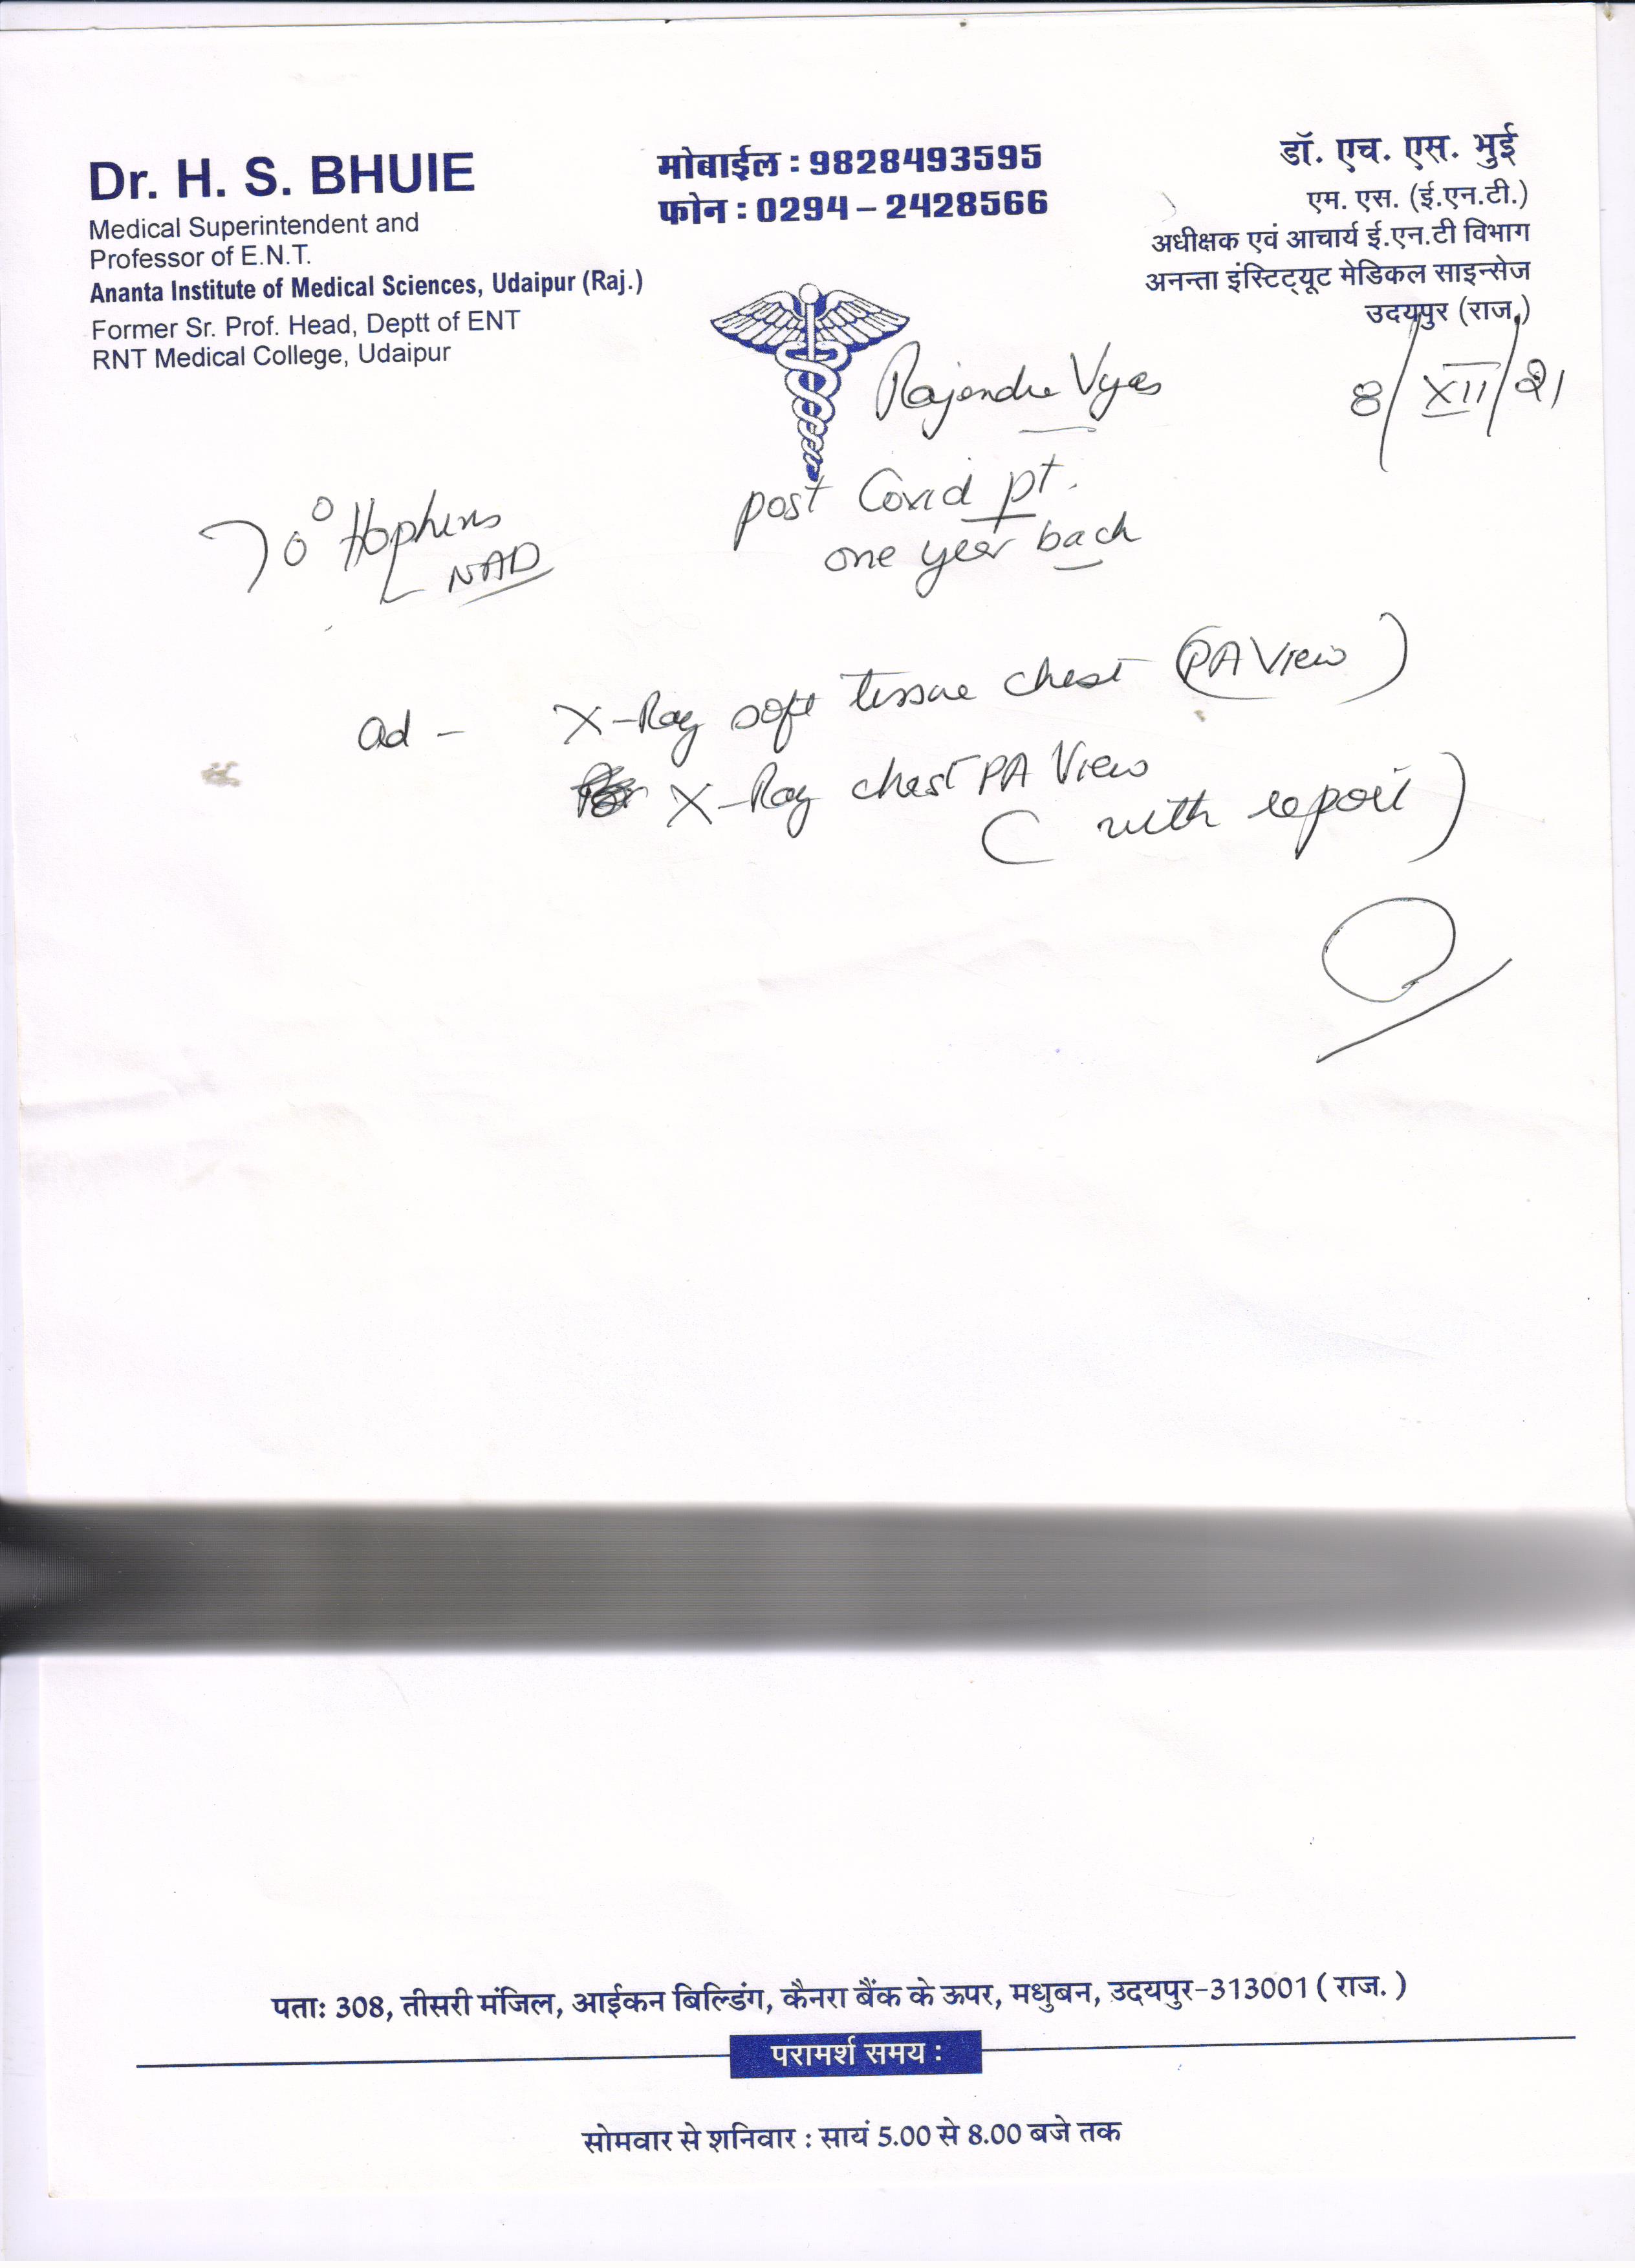 Dr. H. S. BHUIE
Medical Superintendent and
Professor of E.N.T.
Ananta Institute of Medical Sciences, Udaipur (Raj.)
Former Sr. Prof. Head, Deptt of ENT
RNT Medical College, Udaipur
मोबाईल : 9828493595
फोन : 0294 – 2428566
डॉ. एच. एस. भुई
एम. एस. (ई.एन.टी.)
अधीक्षक एवं आचार्य ई.एन.टी विभाग
अनन्ता इंस्टिट्यूट मेडिकल साइन्सेज
उदयपुर (राज.)
Rajendra Vyas
8/XII/21
70° Hopkins
NAD
post Covid pt.
one year back
ad – X-Ray soft tissue chest (PA View)
X-Ray chest PA View
(with report)
पताः 308, तीसरी मंजिल, आईकन बिल्डिंग, कैनरा बैंक के ऊपर, मधुबन, उदयपुर-313001 ( राज. )
परामर्श समय :
सोमवार से शनिवार : सायं 5.00 से 8.00 बजे तक